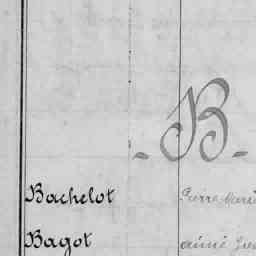 - B -
Bachelot Pierre Marie
Bagot Aimé